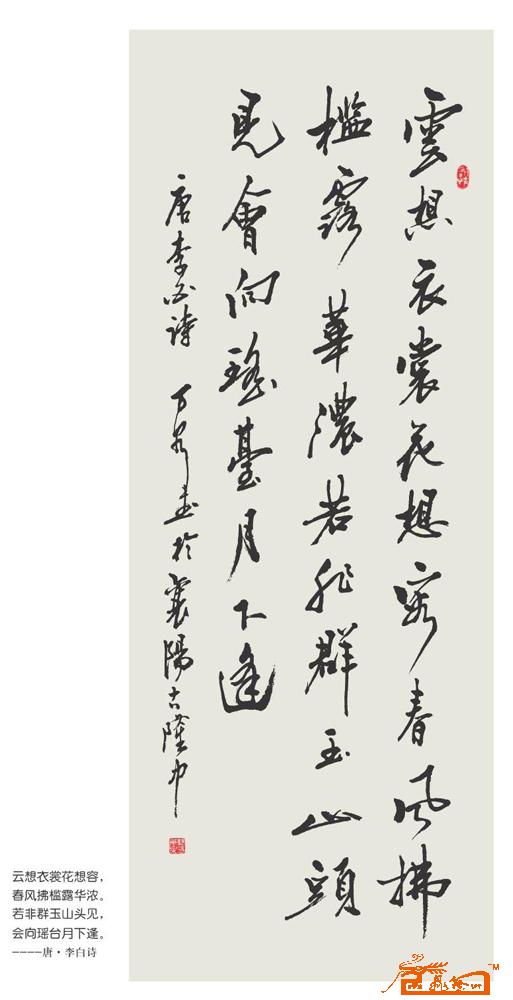 雲想衣裳花想容春風拂
檻露華濃若非群玉山頭
見會向瑤臺月下逢
唐李白詩 万泉書於襄陽古隆中
云想衣裳花想容，
春风拂槛露华浓。
若非群玉山头见，
会向瑶台月下逢。
----唐·李白诗
TM